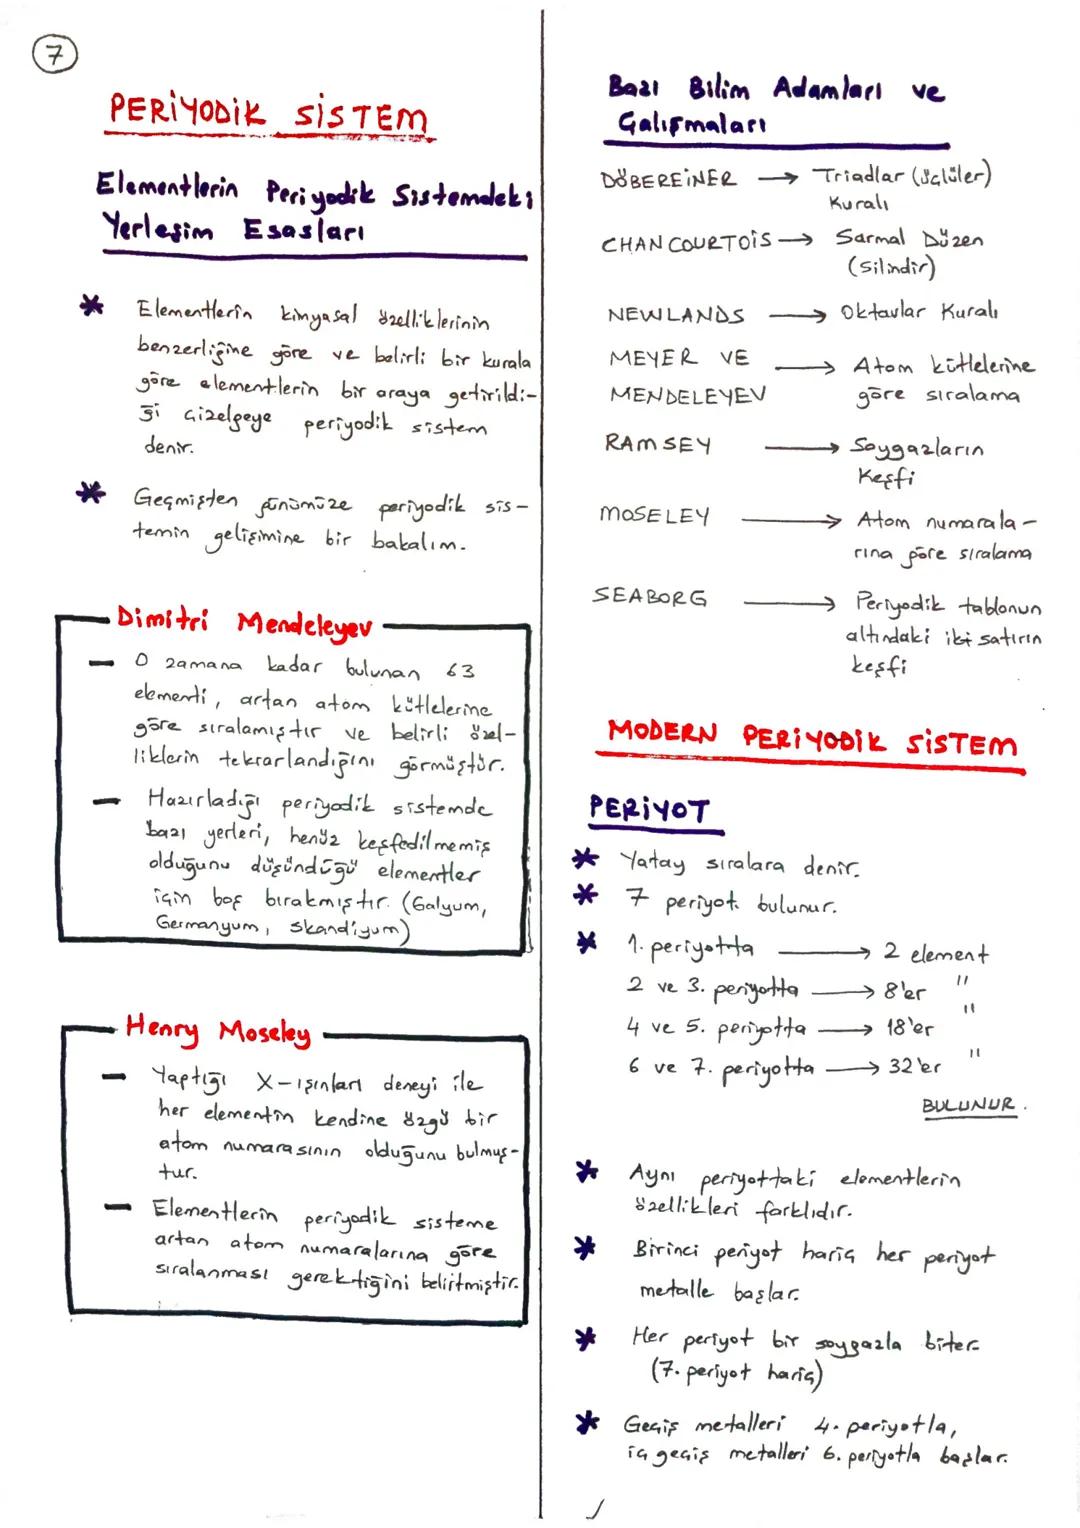 7
PERİYODİK SİSTEM
Elementlerin Periyodik Sistemdeki
Yerleşim Esasları
* Elementlerin kimyasal özelliklerinin
benzerliğine göre ve belirli bir kurala
göre elementlerin bir araya getirildi-
ği çizelgeye periyodik sistem
denir.
* Geçmişten günümüze periyodik sis-
temin gelişimine bir bakalım.
Dimitri Mendeleyev
- O zamana kadar bulunan 63
elementi, artan atom kütlelerine
göre sıralamıştır ve belirli özel-
liklerin tekrarlandığını görmüştür.
- Hazırladığı periyodik sistemde
bazı yerleri, henüz keşfedilmemiş
olduğunu düşündüğü elementler
için boş bırakmıştır. (Galyum,
Germanyum, Skandiyum)
Henry Moseley
- Yaptığı X-ışınları deneyi ile
her elementin kendine özgü bir
atom numarasının olduğunu bulmuş-
tur.
- Elementlerin periyodik sisteme
artan atom numaralarına göre
sıralanması gerektiğini belirtmiştir.
Bazı Bilim Adamları ve
Çalışmaları
DÖBEREİNER → Triadlar (üçlüler)
Kuralı
CHANCOURTOİS → Sarmal Düzen
(Silindir)
NEWLANDS → Oktavlar Kuralı
MEYER VE
MENDELEYEV → Atom kütlelerine
göre sıralama
RAMSEY → Soygazların
Keşfi
MOSELEY → Atom numarala-
rına göre sıralama
SEABORG → Periyodik tablonun
altındaki iki satırın
keşfi
MODERN PERİYODİK SİSTEM
PERİYOT
* Yatay sıralara denir.
* 7 periyot bulunur.
* 1. periyotta → 2 element
2 ve 3. periyotta → 8'er "
4 ve 5. periyotta → 18'er "
6 ve 7. periyotta → 32'er "
BULUNUR.
* Aynı periyottaki elementlerin
özellikleri farklıdır.
* Birinci periyot hariç her periyot
metalle başlar.
* Her periyot bir soygazla biter.
(7. periyot hariç)
* Geçiş metalleri 4. periyotla,
iç geçiş metalleri 6. periyotla başlar.